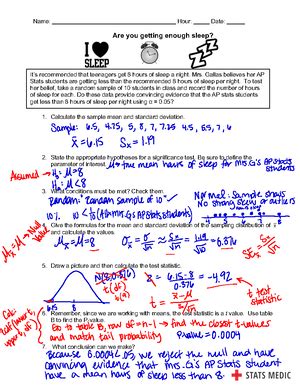 Name: Hour: Date:
Are you getting enough sleep?
I
SLEEP
It's recommended that teenagers get 8 hours of sleep a night. Mrs. Gallas believes her AP
Stats students are getting less than the recommended 8 hours of sleep per night. To test
her belief, take a random sample of 10 students in class and record the number of hours
of sleep for each. Do these data provide convincing evidence that the AP Stats students
get less than 8 hours of sleep per night using α = 0.05?
1. Calculate the sample mean and standard deviation.
Sample: 6.5, 4.75, 5, 8, 7, 7.25 4.5, 6.5, 7, 6
x̄ = 6.15 Sx = 1.19
2. State the appropriate hypotheses for a significance test. Be sure to define the
parameter of interest.
μ = the true mean hours of sleep for Ms.G's AP Stats
students
Assumed → H₀: μ = 8
Hₐ: μ < 8
3. What conditions must be met? Check them.
Random: "Random sample of 10" ✓
10% 10 < 1/10 (All Ms.G's AP Stats students)
Normal: Sample shows
No strong skew or outliers
4. Give the formulas for the mean and standard deviation of the sampling distribution of
5. Draw a picture and then calculate the test statistic.
= -4.92
t test
statistic
6. Remember, since we are working with means, the test statistic is a t value. Use table
B to find the P-value.
Go to table B, row df = n-1 → find the closest t-values
and match tail probability
P-value = 0.0004
7. What conclusion can we make?
Because 0.0004 < .05, we reject the null and have
convincing evidence that Ms.G's AP Stats student
have a mean hours of sleep less than 8
STATS MEDIC